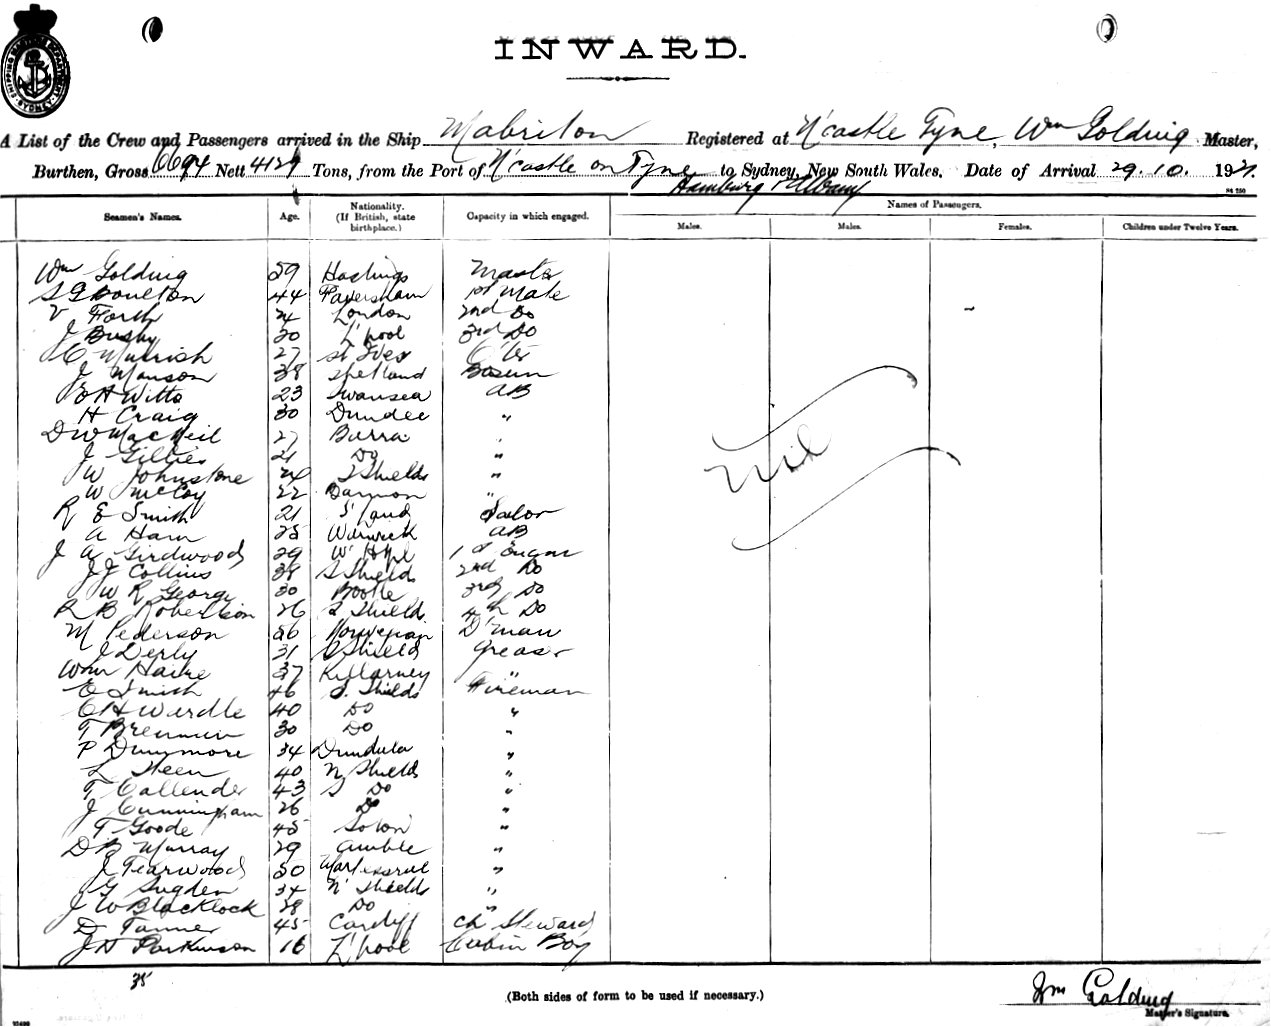 SHIPPING MASTERS DEPARTMENT SYDNEY
INWARD.
A List of the Crew and Passengers arrived in the Ship Mabriton Registered at N'castle Tyne, Wm Golding Master,
Burthen, Gross 6694 Nett 4129 Tons, from the Port of N'castle on Tyne to Sydney, New South Wales, Date of Arrival 29.10. 1921.
Hamburg & Albany
Seamen's Names. Age. Nationality. (If British, state birthplace.) Capacity in which engaged. Names of Passengers.
Males. Males. Females. Children under Twelve Years.
Wm Golding 59 Hastings Master
S G Boulton 44 Faversham 1st Mate
V Forth 24 London 2nd Do
J Busby 30 L'pool 3rd Do
C Murrish 27 St Ives
J Manson 38 Shetland Bosun
E H Witts 23 Swansea AB
H Craig 30 Dundee "
D W MacNeil 27 Barra "
J Gillies 21 Do "
W Johnstone 24 S Shields "
W McCoy 22 "
R E Smith 21 S'land Sailor
A Ham 25 Warwick AB
J A Girdwood 29 W' H'pl 1st Engnr
J J Collins 38 S Shields 2nd Do
W R George 30 Bootle 3rd Do
R B Robertson 26 S Shields 4th Do
M Pederson 56 Norwegian D'man
J Derly 31 S Shields Greaser
Wm Haire 37 Killarney "
E Smith 46 S. Shields Fireman
C H Wardle 40 Do "
T Brennan 30 Do "
P Dunmore 34 "
L Steen 40 N Shields "
T Callender 43 S Do "
J Cunningham 26 Do "
T Goode 45 "
D B Murray 29 Amble "
J Fearwood 50 "
G Sugden 34 N' Shields "
J W Blacklock 28 Do "
D Tanner 45 Cardiff Ch Steward
J H Parkinson 16 L'pool Cabin Boy
Nil
35
(Both sides of form to be used if necessary.)
Wm Golding
Master's Signature.